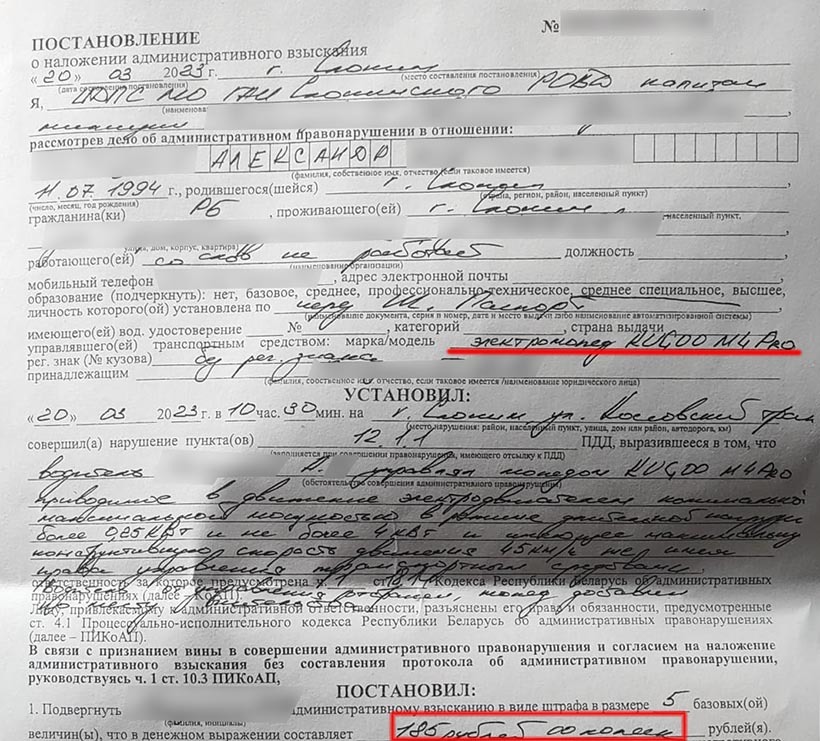 №
ПОСТАНОВЛЕНИЕ
о наложении административного взыскания
«20» 03 2023 г. г. Слоним
(дата составления постановления) (место составления постановления)
Я, ИДПС МО ГАИ Слонимского РОВД капитан
(наименова
милиции
рассмотрев дело об административном правонарушении в отношении:
АЛЕКСАНДР
(фамилия, собственное имя, отчество (если таковое имеется)
11.07.1994 г., родившегося(шейся) г. Слоним
(число, месяц, год рождения) (страна, регион, район, населенный пункт)
гражданина(ки) РБ, проживающего(ей) г. Слоним
населенный пункт,
улица, дом, корпус, квартира)
работающего(ей) со слов не работает должность
(наименование организации)
мобильный телефон , адрес электронной почты
образование (подчеркнуть): нет, базовое, среднее, профессионально-техническое, среднее специальное, высшее,
личность которого(ой) установлена по Паспорт
(наименование документа, серия и номер, дата и место выдачи либо наименование автоматизированной системы)
имеющего(ей) вод. удостоверение № , категорий , страна выдачи
управлявшего(ей) транспортным средством: марка/модель электромопед KUGOO M4 Pro
рег. знак (№ кузова) без рег. знака
принадлежащим
(фамилия, собственное имя, отчество, если таковое имеется /наименование юридического лица)
УСТАНОВИЛ:
«20» 03 2023 г. в 10 час. 30 мин. на г. Слоним ул. Коссовский тракт
(место нарушения: район, населенный пункт, улица, дом или район, автодорога, км)
совершил(а) нарушение пункта(ов) 12.1.1 ПДД, выразившееся в том, что
(заполняется при совершении правонарушения, имеющего отсылку к ПДД)
водитель управлял мопедом KUGOO M4 Pro
(обстоятельства совершения административного правонарушения)
приводимое в движение электродвигателем номинальной
максимальной мощностью в режиме длительной нагрузки
более 0,25 кВт и не более 4 кВт и имеющее максимальную
конструктивную скорость движения 45 км/ч не имея
права управления транспортным средством,
ответственность за которое предусмотрена ч. 1 ст. Кодекса Республики Беларусь об административных
правонарушениях (далее – КоАП). мопед доставлен
Лицу, привлекаемому к административной ответственности, разъяснены его права и обязанности, предусмотренные
ст. 4.1 Процессуально-исполнительного кодекса Республики Беларусь об административных правонарушениях
(далее – ПИКоАП).
В связи с признанием вины в совершении административного правонарушения и согласием на наложение
административного взыскания без составления протокола об административном правонарушении,
руководствуясь ч. 1 ст. 10.3 ПИКоАП,
ПОСТАНОВИЛ:
1. Подвергнуть административному взысканию в виде штрафа в размере 5 базовых(ой)
(фамилия, инициалы)
величин(ы), что в денежном выражении составляет 185 рублей 00 копеек рублей(я).